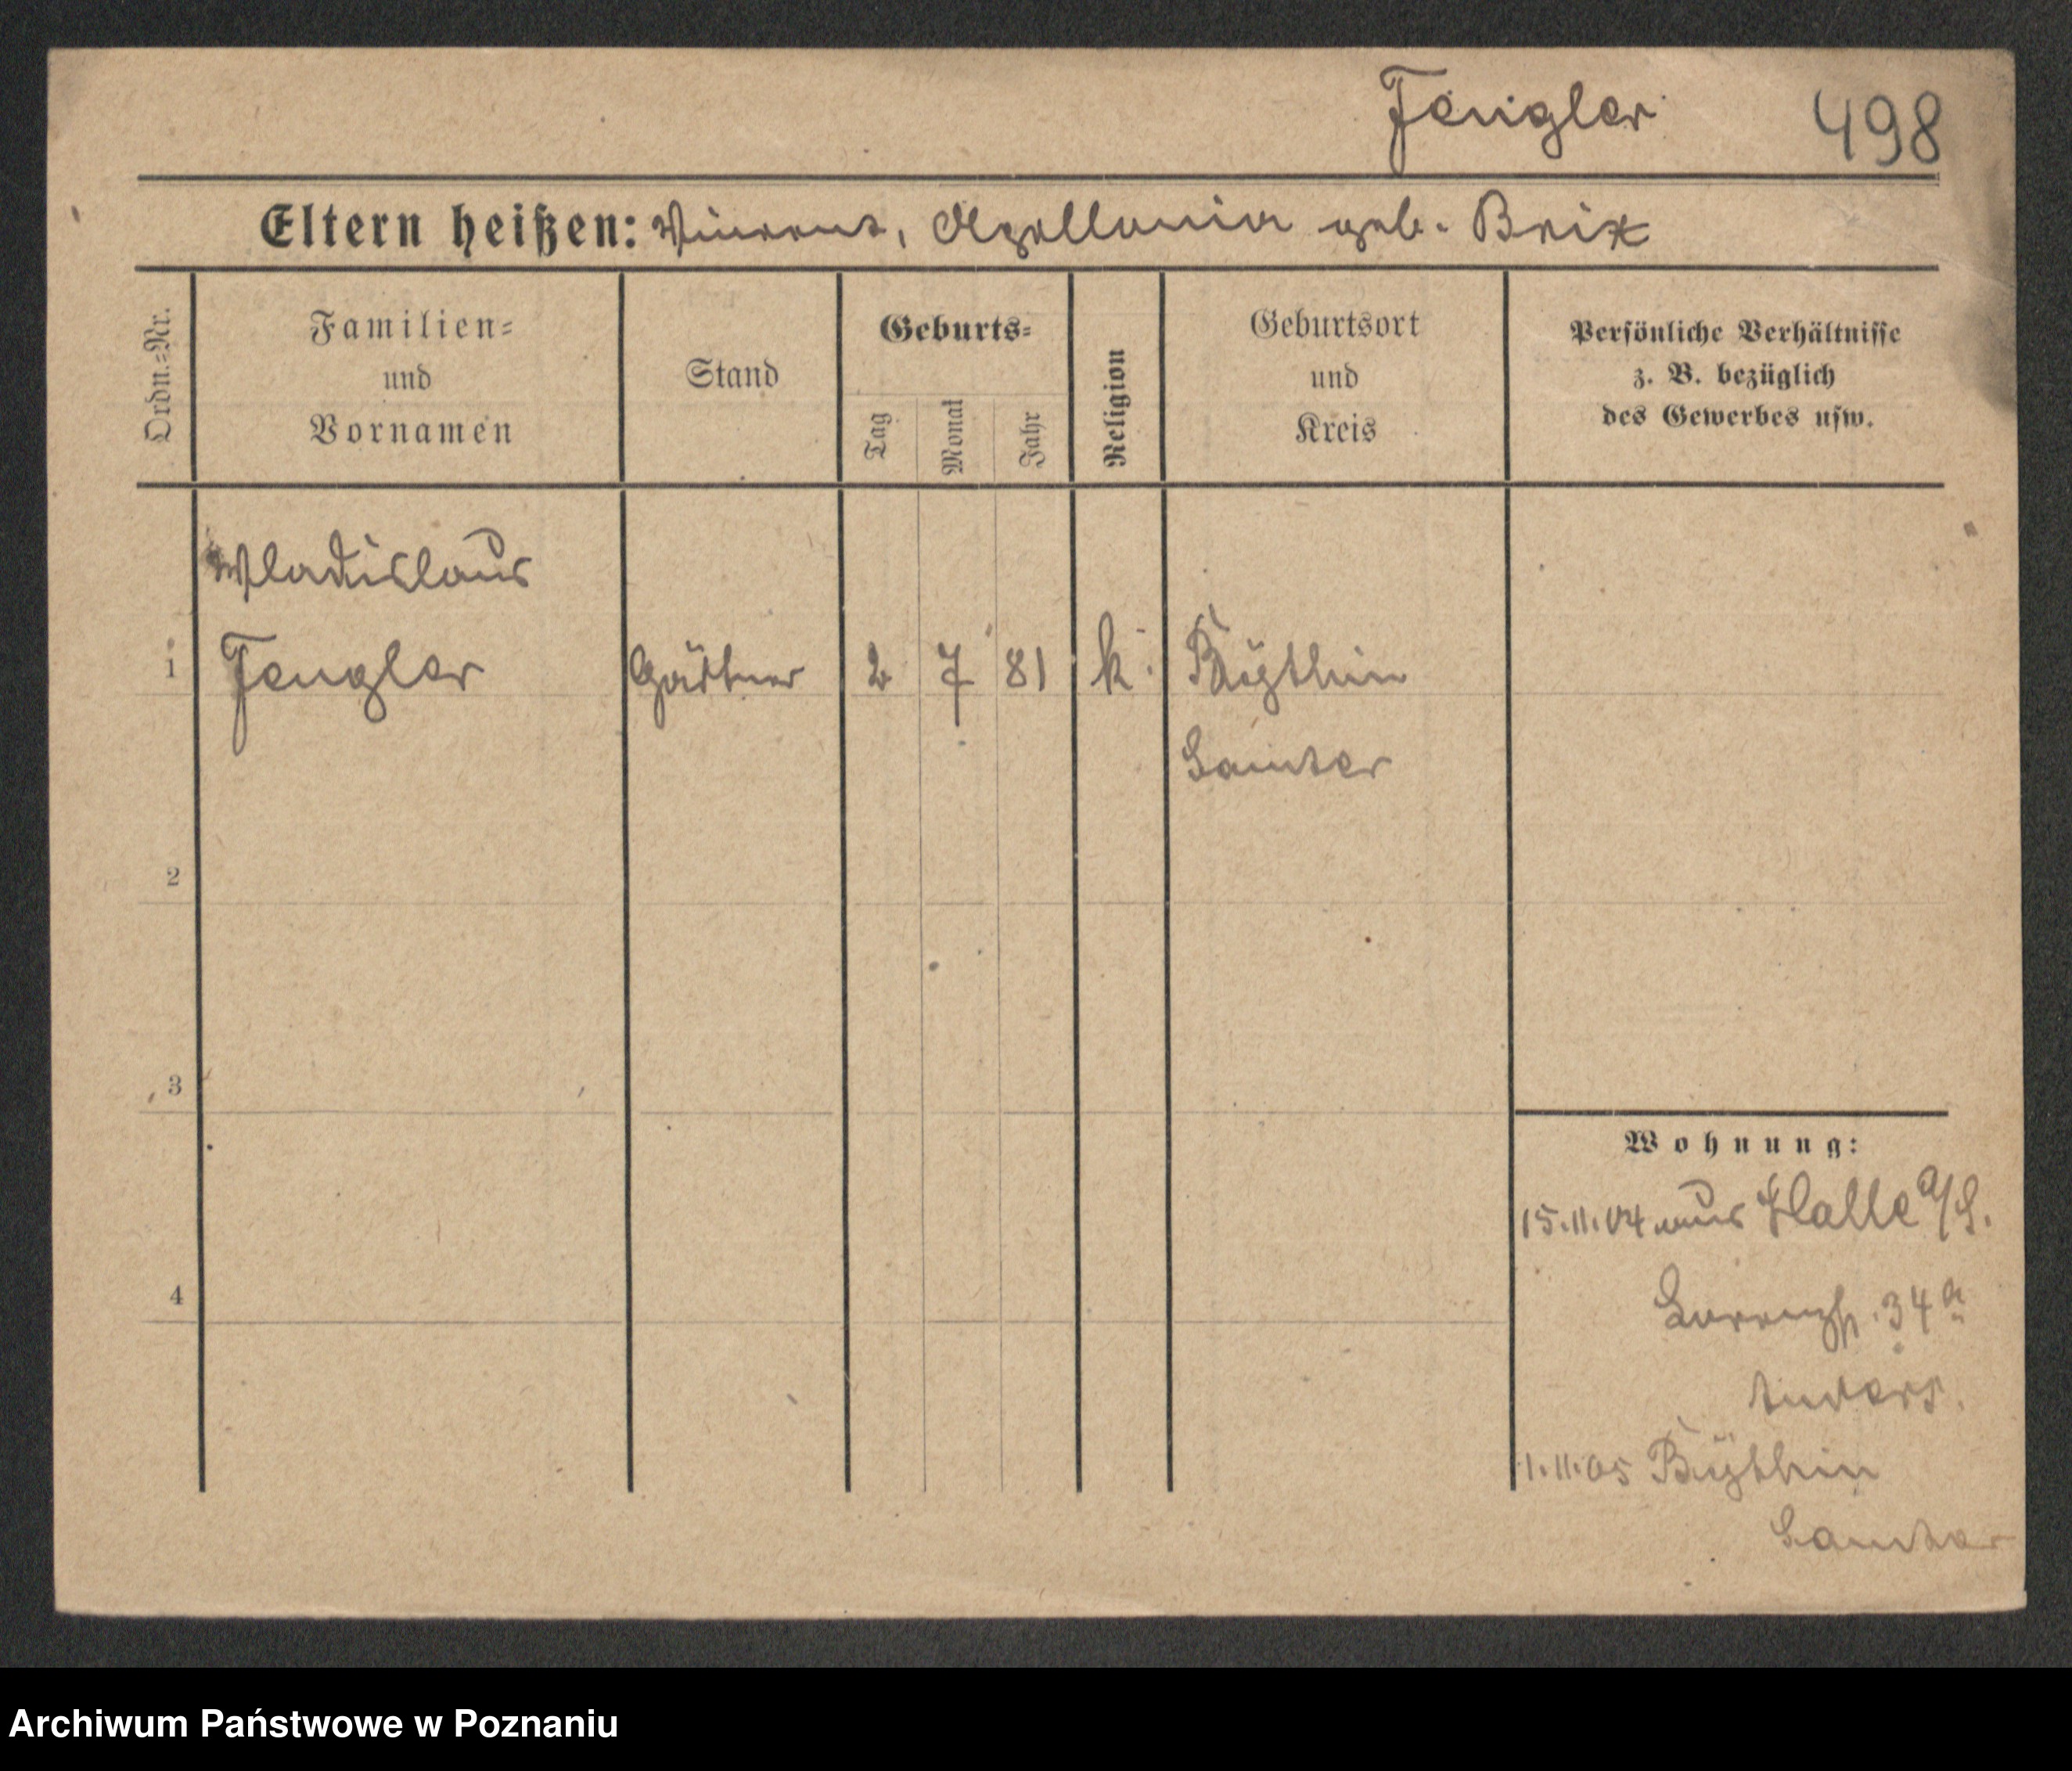 Fengler 498
Eltern heißen: Vincent, Apollonia geb. Brix
Ordn.=Nr.
Familien=
und
Vornamen
Stand
Geburts=
Tag
Monat
Jahr
Religion
Geburtsort
und
Kreis
Persönliche Verhältnisse
z. B. bezüglich
des Gewerbes usw.
Wladislaus
1 Fengler Gärtner 2 7 81 k.
Samter
2
3
4
Wohnung:
15.11.04 aus Halle a/S.
34a
1.11.05
Samter
Archiwum Państwowe w Poznaniu